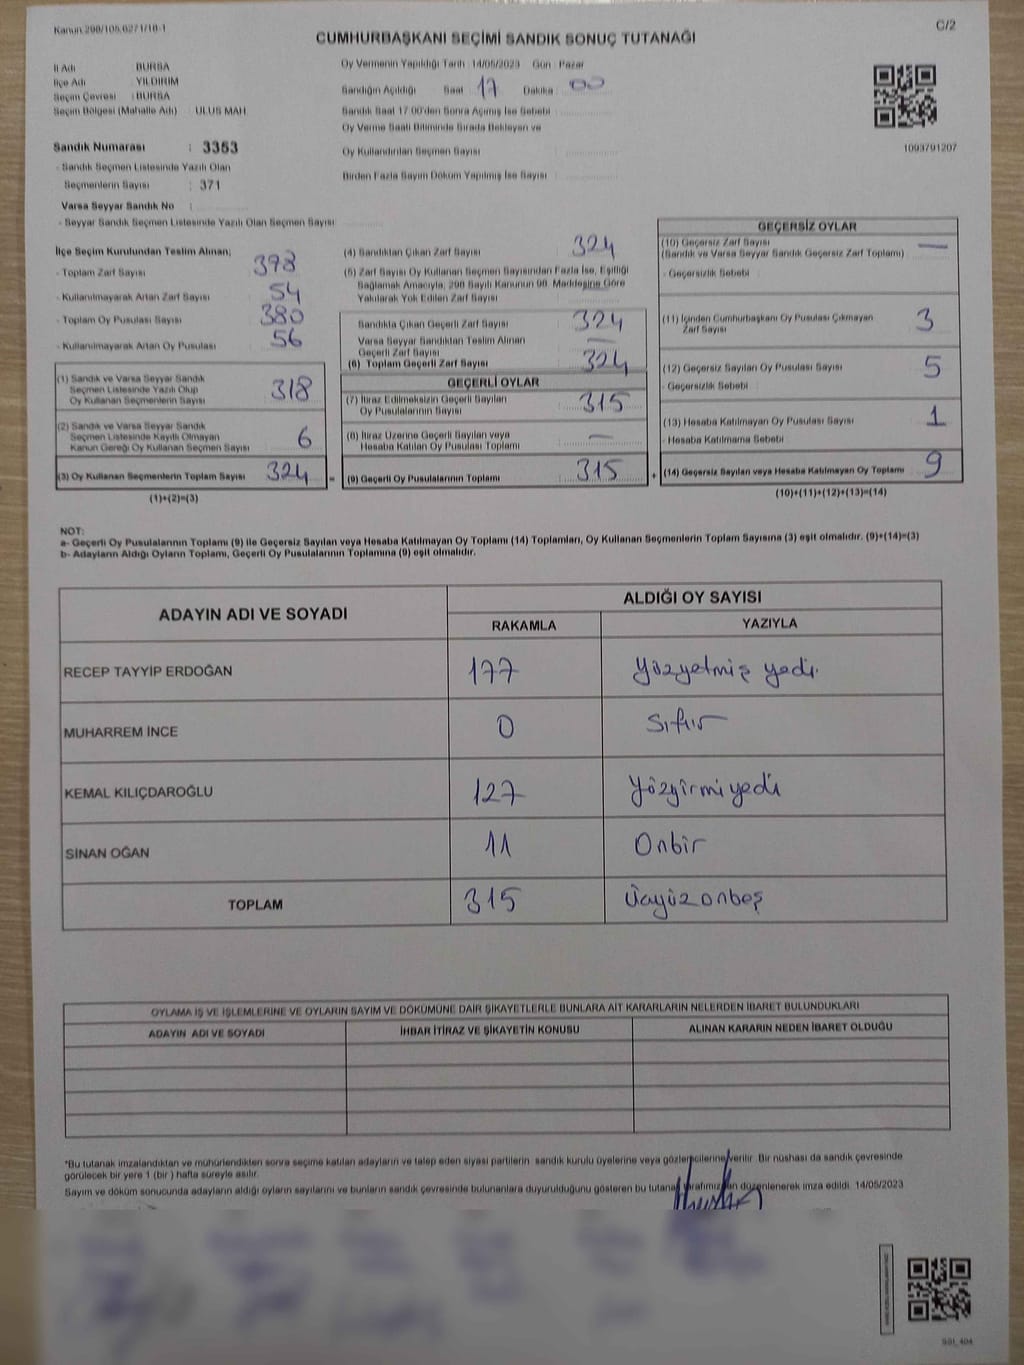 Kanun:298/105,6271/18-1
C/2
CUMHURBAŞKANI SEÇİMİ SANDIK SONUÇ TUTANAĞI
İl Adı : BURSA
İlçe Adı : YILDIRIM
Seçim Çevresi : BURSA
Seçim Bölgesi (Mahalle Adı) : ULUS MAH
Oy Vermenin Yapıldığı Tarih :14/05/2023 Gün : Pazar
Sandığın Açıldığı Saat 17 Dakika : 00
Sandık Saat 17:00'den Sonra Açılmış İse Sebebi :
Oy Verme Saati Bitiminde Sırada Bekleyen ve
Oy Kullandırılan Seçmen Sayısı :
Birden Fazla Sayım Döküm Yapılmış İse Sayısı :
1093791207
Sandık Numarası : 3353
- Sandık Seçmen Listesinde Yazılı Olan
Seçmenlerin Sayısı : 371
Varsa Seyyar Sandık No :
- Seyyar Sandık Seçmen Listesinde Yazılı Olan Seçmen Sayısı:
İlçe Seçim Kurulundan Teslim Alınan;
- Toplam Zarf Sayısı : 378
- Kullanılmayarak Artan Zarf Sayısı : 54
- Toplam Oy Pusulası Sayısı : 380
- Kullanılmayarak Artan Oy Pusulası : 56
(1) Sandık ve Varsa Seyyar Sandık
Seçmen Listesinde Yazılı Olup
Oy Kullanan Seçmenlerin Sayısı 318
(2) Sandık ve Varsa Seyyar Sandık
Seçmen Listesinde Kayıtlı Olmayan
Kanun Gereği Oy Kullanan Seçmen Sayısı 6
(3) Oy Kullanan Seçmenlerin Toplam Sayısı 324
(1)+(2)=(3)
(4) Sandıktan Çıkan Zarf Sayısı : 324
(5) Zarf Sayısı Oy Kullanan Seçmen Sayısından Fazla İse, Eşitliği
Sağlamak Amacıyla, 298 Sayılı Kanunun 98. Maddesine Göre
Yakılarak Yok Edilen Zarf Sayısı : —
Sandıkta Çıkan Geçerli Zarf Sayısı : 324
Varsa Seyyar Sandıktan Teslim Alınan
Geçerli Zarf Sayısı : —
(6) Toplam Geçerli Zarf Sayısı : 324
GEÇERLİ OYLAR
(7) İtiraz Edilmeksizin Geçerli Sayılan
Oy Pusulalarının Sayısı : 315
(8) İtiraz Üzerine Geçerli Sayılan veya
Hesaba Katılan Oy Pusulası Toplamı : —
= (9) Geçerli Oy Pusulalarının Toplamı : 315
GEÇERSİZ OYLAR
(10) Geçersiz Zarf Sayısı
(Sandık ve Varsa Seyyar Sandık Geçersiz Zarf Toplamı) —
- Geçersizlik Sebebi :
(11) İçinden Cumhurbaşkanı Oy Pusulası Çıkmayan
Zarf Sayısı 3
(12) Geçersiz Sayılan Oy Pusulası Sayısı 5
- Geçersizlik Sebebi :
(13) Hesaba Katılmayan Oy Pusulası Sayısı 1
- Hesaba Katılmama Sebebi :
+ (14) Geçersiz Sayılan veya Hesaba Katılmayan Oy Toplamı 9
(10)+(11)+(12)+(13)=(14)
NOT:
a- Geçerli Oy Pusulalarının Toplamı (9) ile Geçersiz Sayılan veya Hesaba Katılmayan Oy Toplamı (14) Toplamları, Oy Kullanan Seçmenlerin Toplam Sayısına (3) eşit olmalıdır. (9)+(14)=(3)
b- Adayların Aldığı Oyların Toplamı, Geçerli Oy Pusulalarının Toplamına (9) eşit olmalıdır.
ADAYIN ADI VE SOYADI ALDIĞI OY SAYISI
RAKAMLA YAZIYLA
RECEP TAYYİP ERDOĞAN 177 Yüzyetmiş yedi.
MUHARREM İNCE 0 Sıfır
KEMAL KILIÇDAROĞLU 127 Yüzyirmiyedi
SİNAN OĞAN 11 Onbir
TOPLAM 315 Üçyüzonbeş
OYLAMA İŞ VE İŞLEMLERİNE VE OYLARIN SAYIM VE DÖKÜMÜNE DAİR ŞİKAYETLERLE BUNLARA AİT KARARLARIN NELERDEN İBARET BULUNDUKLARI
ADAYIN ADI VE SOYADI İHBAR İTİRAZ VE ŞİKAYETİN KONUSU ALINAN KARARIN NEDEN İBARET OLDUĞU
*Bu tutanak imzalandıktan ve mühürlendikten sonra seçime katılan adayların ve talep eden siyasi partilerin sandık kurulu üyelerine veya gözlemcilerine verilir. Bir nüshası da sandık çevresinde
görülecek bir yere 1 (bir ) hafta süreyle asılır.
Sayım ve döküm sonucunda adayların aldığı oyların sayılarını ve bunların sandık çevresinde bulunanlara duyurulduğunu gösteren bu tutanak tarafımızdan düzenlenerek imza edildi. 14/05/2023